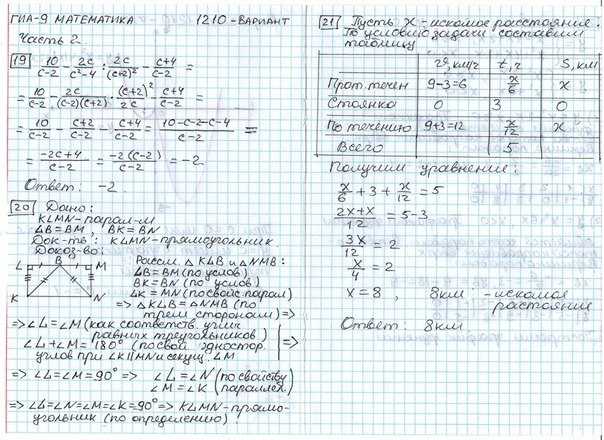 ГИА-9 МАТЕМАТИКА 1210-ВАРИАНТ
Часть 2
19 10/(c-2) - 2c/(c²-4) : 2c/(c+2)² - (c+4)/(c-2) =
= 10/(c-2) - 2c/((c-2)(c+2)) · (c+2)²/2c - (c+4)/(c-2) =
= 10/(c-2) - (c+2)/(c-2) - (c+4)/(c-2) = (10-c-2-c-4)/(c-2) =
= (-2c+4)/(c-2) = -2(c-2)/(c-2) = -2
Ответ: -2.
20 Дано:
KLMN-парал-м
LB=BM, BK=BN
Док-ть: KLMN-прямоугольник
Доказ-во:
L B M
K N
Рассм. △KLB и △NMB:
LB=BM (по услов)
BK=BN (по услов)
LK=MN (по свойс. парал)
=> △KLB=△NMB (по
трем сторонам) =>
=> ∠L=∠M (как соответств. углы
равных треугольников)
∠L+∠M=180° (по свой. одностор.
углов при LK||MN и секущ. LM
=>
=> ∠L=∠M=90° => ∠L=∠N (по свойству
∠M=∠K параллел)
=> ∠L=∠N=∠M=∠K=90° => KLMN-прямо-
угольник (по определению)
21 Пусть x-искомое расстояние.
По условию задачи составим
таблицу
v, км/ч t, ч S, км
Прот. течен 9-3=6 x/6 x
Стоянка 0 3 0
По течению 9+3=12 x/12 x
Всего 5
Получим уравнение:
x/6 + 3 + x/12 = 5
(2x+x)/12 = 5-3
3x/12 = 2
x/4 = 2
x=8, 8км -искомое
расстояние
Ответ: 8км.